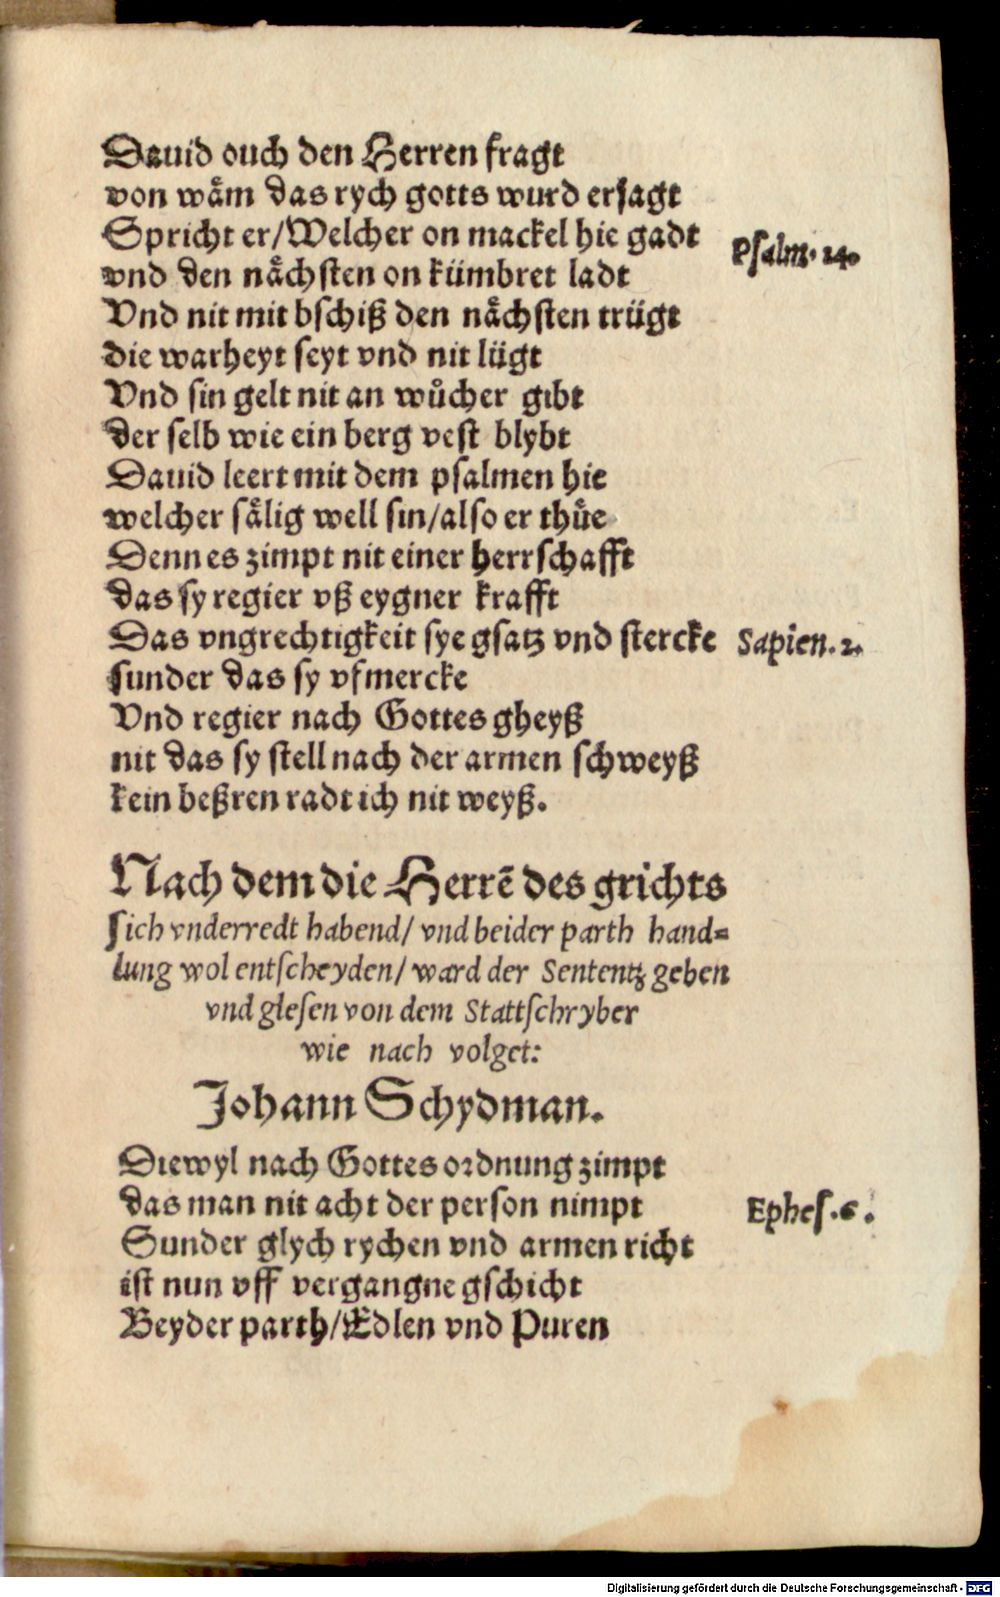 Dauid ouch den Herren fragt
von wåm das rych gotts wurd ersagt
Spricht er/Welcher on mackel hie gadt
Psalm. 14.
vnd den nåchsten on kümbret ladt
Vnd nit mit bschiß den nåchsten trügt
die warheyt seyt vnd nit lügt
Vnd sin gelt nit an wůcher gibt
der selb wie ein berg vest blybt
Dauid leert mit dem psalmen hie
welcher sålig well sin/also er thůe
Denn es zimpt nit einer herrschafft
das sy regier vß eygner krafft
Das vngrechtigkeit sye gsatz vnd stercke
Sapien. 2.
sunder das sy vfmercke
Vnd regier nach Gottes gheyß
nit das sy stell nach der armen schweyß
kein beßren radt ich nit weyß.
Nach dem die Herrē des grichts
sich vnderredt habend/ vnd beider parth hand⸗
lung wol entscheyden/ ward der Sententz geben
vnd glesen von dem Stattschryber
wie nach volget:
Johann Schydman.
Diewyl nach Gottes ordnung zimpt
das man nit acht der person nimpt
Ephes. 6.
Sunder glych rychen vnd armen richt
ist nun vff vergangne gschicht
Beyder parth/Edlen vnd Puren
Digitalisierung gefördert durch die Deutsche Forschungsgemeinschaft - DFG